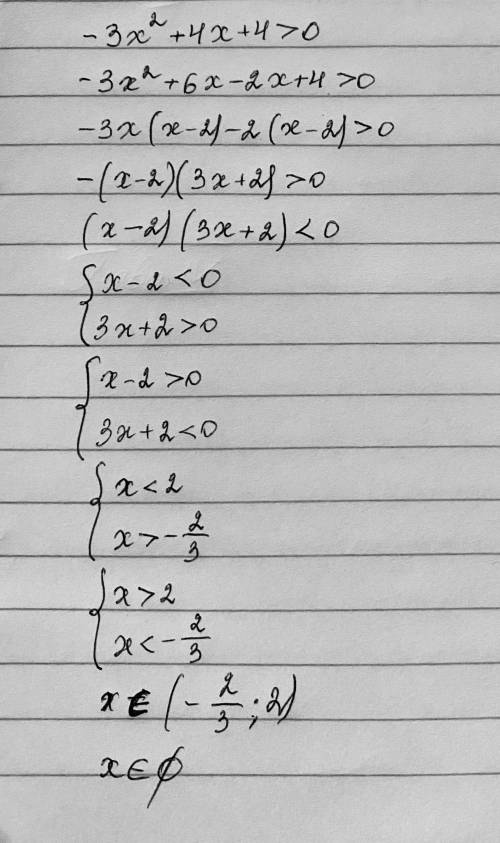 -3x²+4x+4>0
-3x²+6x-2x+4>0
-3x(x-2)-2(x-2)>0
-(x-2)(3x+2)>0
(x-2)(3x+2)<0
{x-2<0
3x+2>0
{x-2>0
3x+2<0
{x<2
x>-2/3
{x>2
x<-2/3
x∈(-2/3;2)
x∈∅